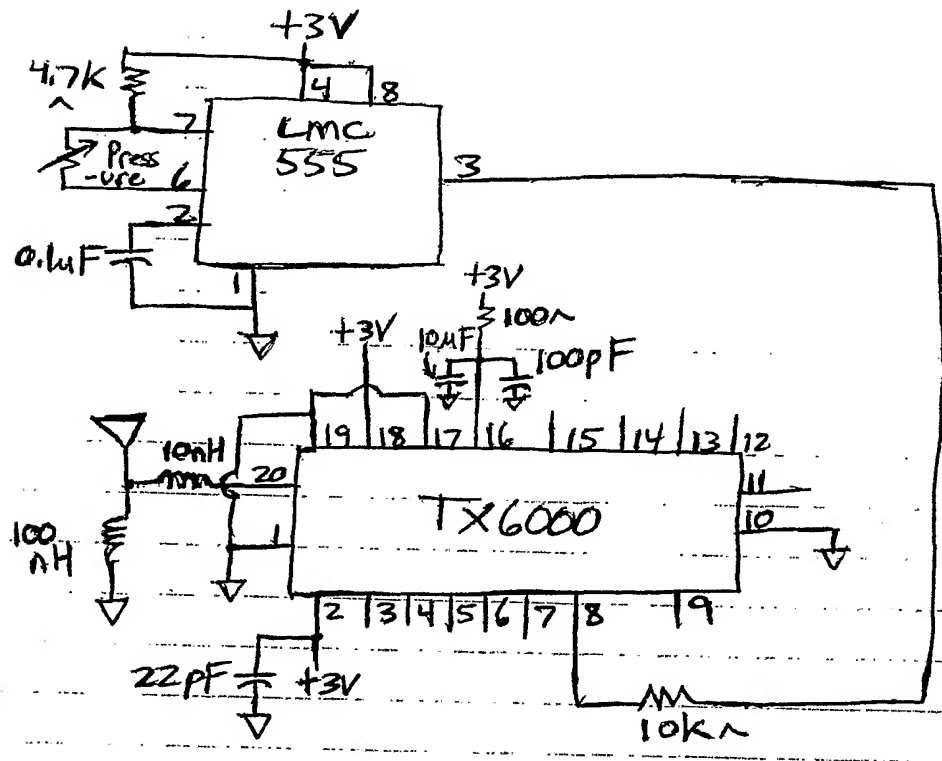 +3V
4.7K
Ω
4 8
7
LMC
555
Press
-ure
6
3
2
0.1uF
1
+3V
100Ω
+3V
10µF
100pF
19 18 17 16 15 14 13 12
10nH
20
11
TX6000
10
1
100
nH
2 3 4 5 6 7 8 9
22pF
+3V
10KΩ